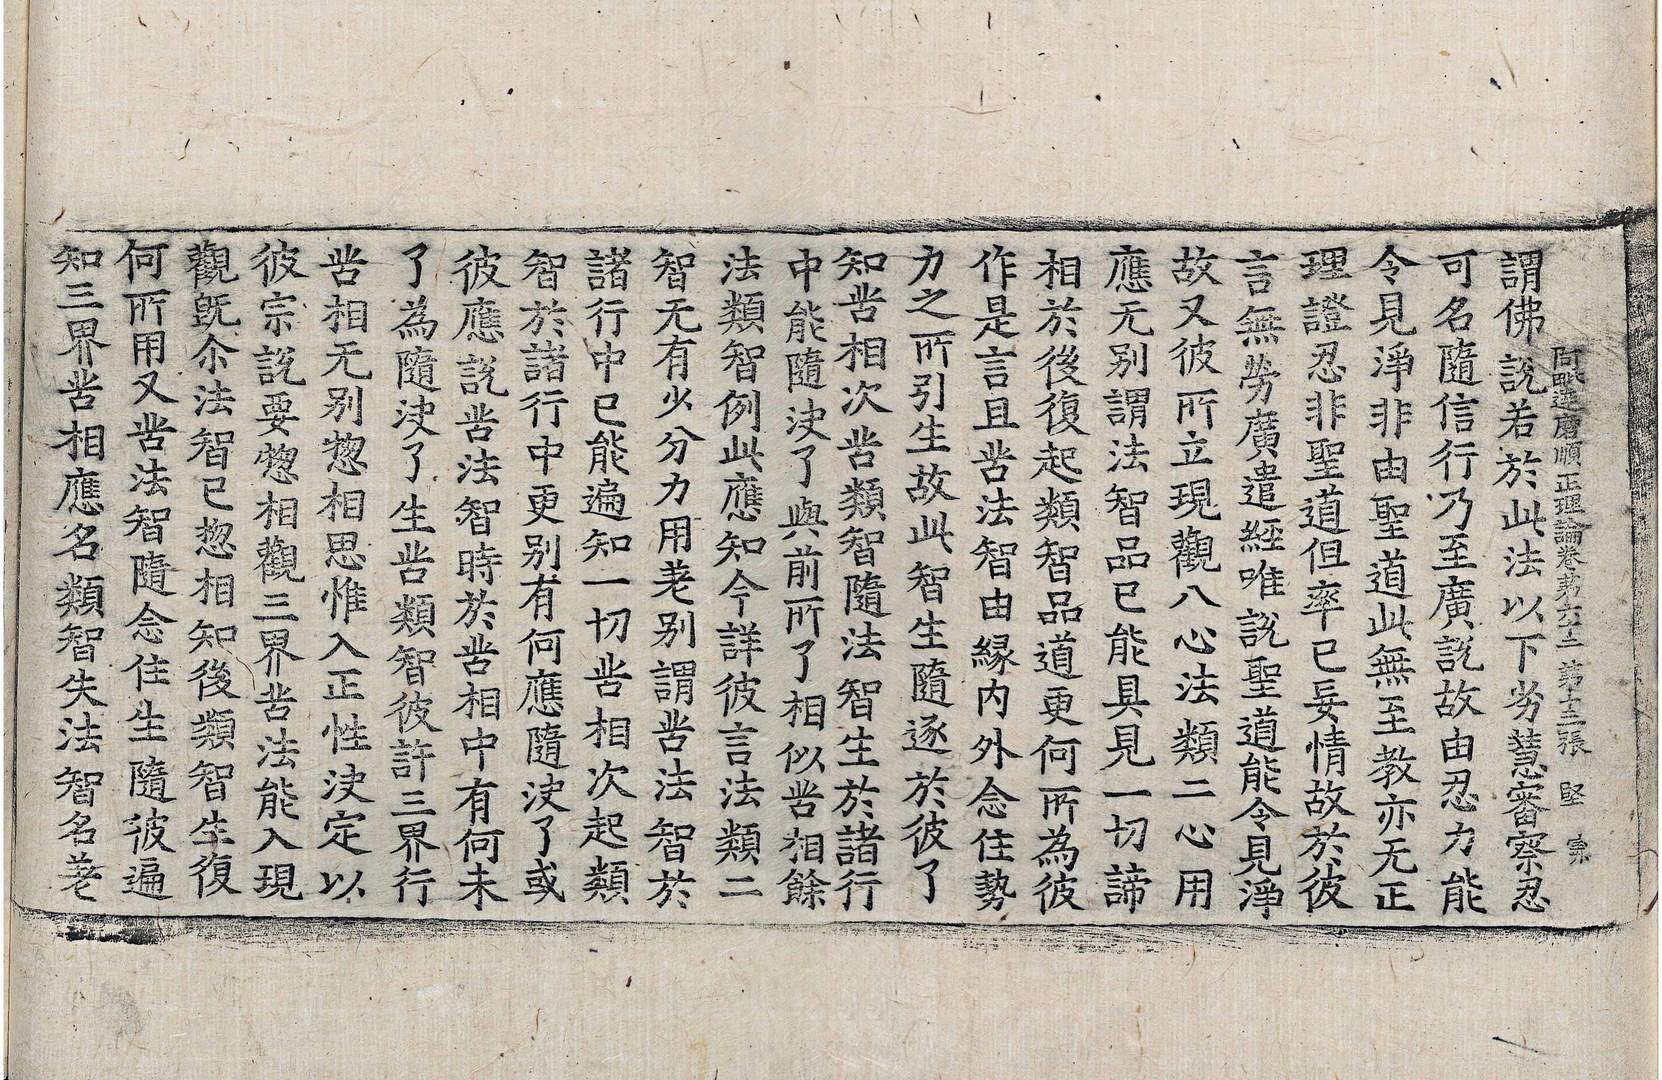 阿毗達磨順正理論卷苐六十二 第十三張 堅
謂佛說若於此法以下劣慧審察忍
可名隨信行乃至廣說故由忍力能
令見淨非由聖道此無至教亦无正
理證忍非聖道但率已妄情故於彼
言無勞廣遣經唯說聖道能令見淨
故又彼所立現觀八心法類二心用
應无別謂法智品已能具見一切諦
相於後復起類智品道更何所為彼
作是言且苦法智由緣內外念住勢
力之所引生故此智生隨逐於彼了
知苦相次苦類智隨法智生於諸行
中能隨決了與前所了相似苦相餘
法類智例此應知今詳彼言法類二
智无有少分力用差别謂苦法智於
諸行中已能遍知一切苦相次起類
智於諸行中更别有何應隨決了或
彼應說苦法智時於苦相中有何未
了為隨決了生苦類智彼許三界行
苦相无别惣相思惟入正性決定以
彼宗說要惣相觀三界苦法能入現
觀旣尒法智已惣相知後類智生復
何所用又苦法智隨念住生隨彼遍
知三界苦相應名類智失法智名差